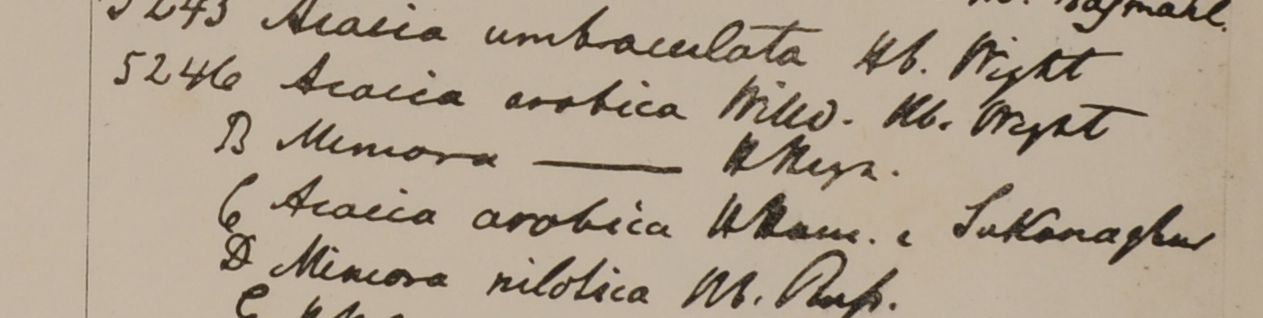 5245 Acacia umbraculata Hb. Wight
5246 Acacia arabica Willd. Hb. Wight
B Mimosa —— HHeyn.
C Acacia arabica HHam. e Sukanaghur
D Mimosa nilotica Hb. Russ.